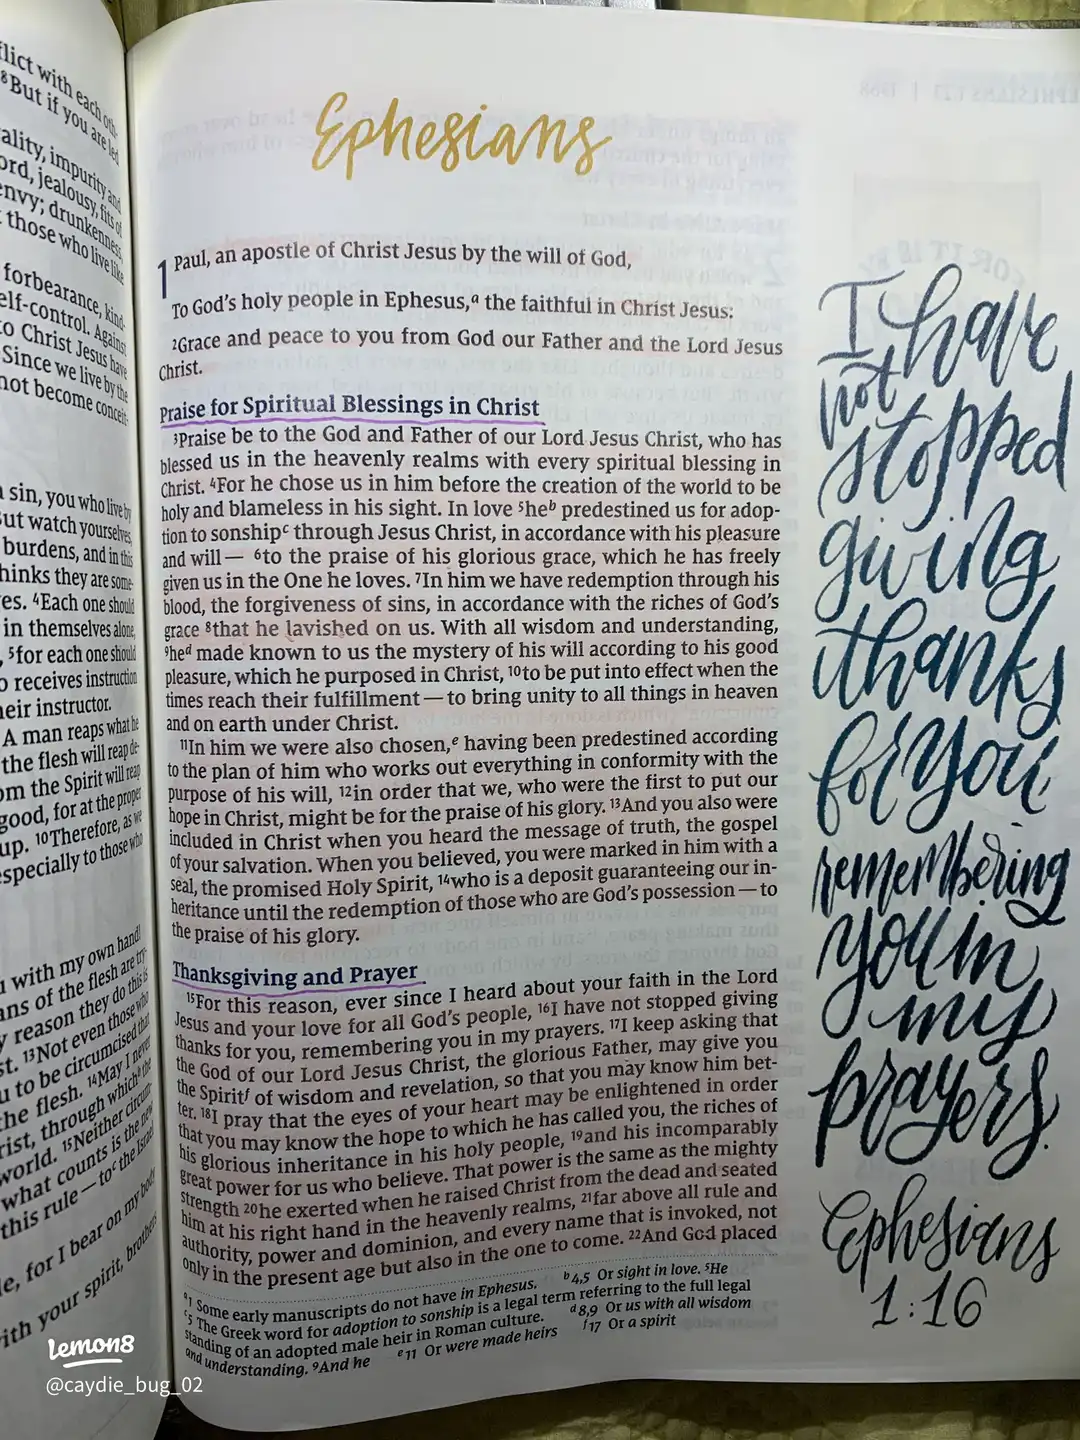 flict with each oth-
⁸But if you are led
ality, impurity and
ord, jealousy, fits of
envy; drunkenness,
those who live like
forbearance, kind-
elf-control. Against
to Christ Jesus have
Since we live by the
not become conceit-
sin, you who live by
But watch yourselves,
burdens, and in this
thinks they are some-
es. ⁴Each one should
in themselves alone,
⁵for each one should
o receives instruction
heir instructor.
A man reaps what he
the flesh will reap de-
om the Spirit will reap
good, for at the proper
up. ¹⁰Therefore, as we
especially to those who
u with my own hand!
ans of the flesh are try-
y reason they do this is
st. ¹³Not even those who
u to be circumcised that
the flesh. ¹⁴May I never
rist, through which the
world. ¹⁵Neither circum-
what counts is the new
this rule — to the Israel
le, for I bear on my body
with your spirit, brothers
Ephesians
1 Paul, an apostle of Christ Jesus by the will of God,
To God's holy people in Ephesus,ᵃ the faithful in Christ Jesus:
²Grace and peace to you from God our Father and the Lord Jesus
Christ.
Praise for Spiritual Blessings in Christ
³Praise be to the God and Father of our Lord Jesus Christ, who has
blessed us in the heavenly realms with every spiritual blessing in
Christ. ⁴For he chose us in him before the creation of the world to be
holy and blameless in his sight. In love ⁵heᵇ predestined us for adop-
tion to sonshipᶜ through Jesus Christ, in accordance with his pleasure
and will — ⁶to the praise of his glorious grace, which he has freely
given us in the One he loves. ⁷In him we have redemption through his
blood, the forgiveness of sins, in accordance with the riches of God's
grace ⁸that he lavished on us. With all wisdom and understanding,
⁹heᵈ made known to us the mystery of his will according to his good
pleasure, which he purposed in Christ, ¹⁰to be put into effect when the
times reach their fulfillment — to bring unity to all things in heaven
and on earth under Christ.
¹¹In him we were also chosen,ᵉ having been predestined according
to the plan of him who works out everything in conformity with the
purpose of his will, ¹²in order that we, who were the first to put our
hope in Christ, might be for the praise of his glory. ¹³And you also were
included in Christ when you heard the message of truth, the gospel
of your salvation. When you believed, you were marked in him with a
seal, the promised Holy Spirit, ¹⁴who is a deposit guaranteeing our in-
heritance until the redemption of those who are God's possession — to
the praise of his glory.
Thanksgiving and Prayer
¹⁵For this reason, ever since I heard about your faith in the Lord
Jesus and your love for all God's people, ¹⁶I have not stopped giving
thanks for you, remembering you in my prayers. ¹⁷I keep asking that
the God of our Lord Jesus Christ, the glorious Father, may give you
the Spiritᶠ of wisdom and revelation, so that you may know him bet-
ter. ¹⁸I pray that the eyes of your heart may be enlightened in order
that you may know the hope to which he has called you, the riches of
his glorious inheritance in his holy people, ¹⁹and his incomparably
great power for us who believe. That power is the same as the mighty
strength ²⁰he exerted when he raised Christ from the dead and seated
him at his right hand in the heavenly realms, ²¹far above all rule and
authority, power and dominion, and every name that is invoked, not
only in the present age but also in the one to come. ²²And God placed
ᵃ1 Some early manuscripts do not have in Ephesus. ᵇ4,5 Or sight in love. ⁵He
ᶜ5 The Greek word for adoption to sonship is a legal term referring to the full legal
standing of an adopted male heir in Roman culture. ᵈ8,9 Or us with all wisdom
and understanding. ⁹And he ᵉ11 Or were made heirs ᶠ17 Or a spirit
I have
not
stopped
giving
thanks
for you,
remembering
you in
my
prayers.
Ephesians
1:16
lemon8
@caydie_bug_02